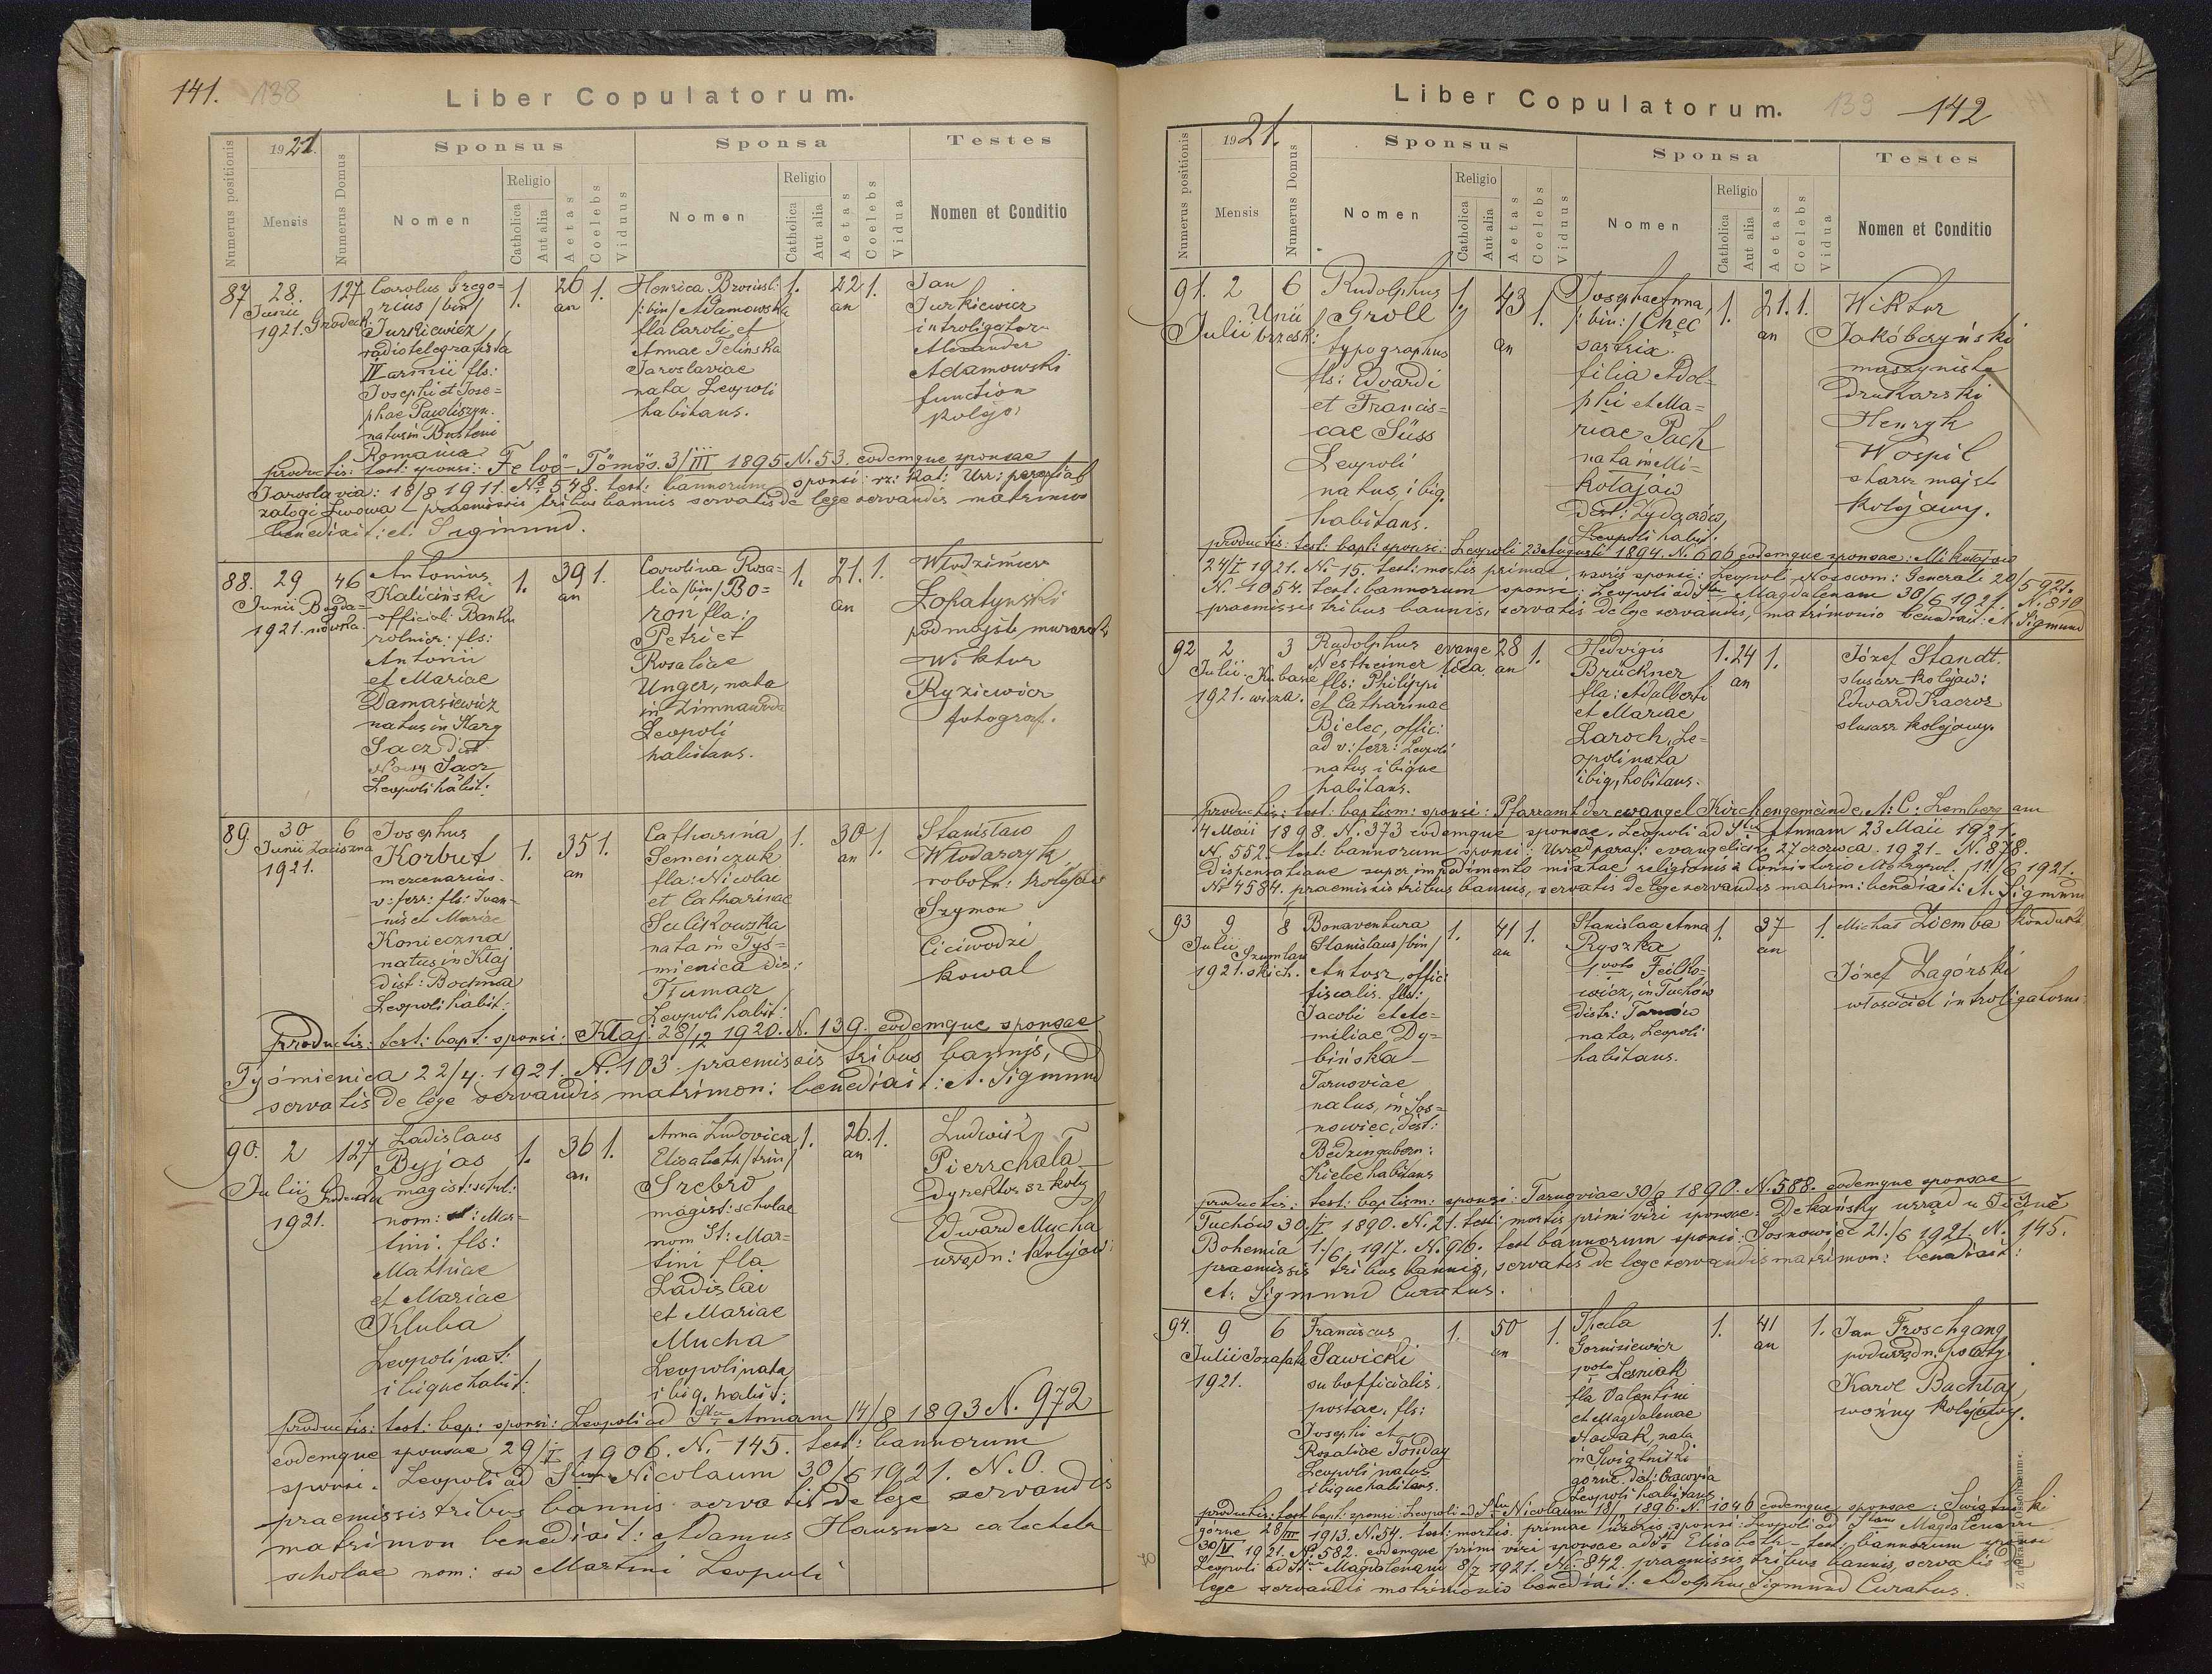 141. 138
Liber Copulatorum.
1921.
Sponsus
Sponsa
Testes
Numerus positionis
Mensis
Numerus Domus
Nomen
Religio
Catholica
Aut alia
Aetas
Coelebs
Viduus
Nomen
Religio
Catholica
Aut alia
Aetas
Coelebs
Vidua
Nomen et Conditio
87 28. Junii 1921. 127 Grodeck:
Carolus Grego=
rius /bin/
Jurkiewicz
radiotelegrafista
IV armii fls:
Josephi et Jose=
phae Pawliszyn.
natus in Busteni
Romania
1. 26 an 1.
Henrica Bronisl:
/:bin/ Adamowska
fla Caroli et
Annae Telinska
Jaroslaviae
nata Leopoli
habitans.
1. 22 an 1.
Jan
Jurkiewicz
introligator
Alexander
Adamowski
function
kolejo:
productis: test: sponsi: Felsö-Tömös. 3/III 1895 N. 53. eodemque sponsae
Jaroslavia: 18/8 1911. No 548. test: bannorum sponsi: rz: kat: Urz: parafial
załogi Lwowa praemissis tribus bannis servatis de lege servandis matrimon
benedixit: A. Sigmund.
88. 29 Junii 1921. 46 Bogda=
nówka.
Antonius
Kaliciński
official: Banku
rolnicz: fls:
Antonii
et Mariae
Damasiewicz
natus in Stary
Sącz dist
Nowy Sącz
Leopoli habit:
1. 39 an 1.
Carolina Rosa=
lia /bin/ Bo=
ron fla:
Petri et
Rosaliae
Unger, nata
in Zimnawoda
Leopoli
habitans.
1. 21. an 1.
Włodzimierz
Łopatyński
podmajst: murarsk
Wiktor
Ryziewicz
fotograf.
89. 30 Junii 1921. 6 Zaciszna
Josephus
Korbut
mercenarius.
v: ferr: fls: Joan=
nis et Mariae
Konieczna
natus in Kłaj
dist: Bochnia
Leopoli habit:
1. 35 an 1.
Catharina
Semeńczuk
fla: Nicolae
et Catharinae
Salikowska
nata in Tys=
mienica dis:
Tłumacz
Leopoli habit:
1. 30 an 1.
Stanisław
Włodarczyk
robotn: kolejow
Szymon
Ciciwodzi
kowal
Productis: test: bapt: sponsi: Kłaj: 28/12 1920. N. 139. eodemque sponsae
Tyśmienica 22/4. 1921. N. 103. praemissis tribus bannis,
servatis de lege servandis matrimon: benedixit: A. Sigmund
90. 2 Julii 1921. 127
Ladislaus
Byjas
magist: schol:
nom: St: Mar=
tini. fls:
Mathiae
et Mariae
Kluba
Leopoli nat:
ibique habit:
1. 36 an 1.
Anna Ludovica
Elisabeth /trin/
Srebro
magist: scholae
nom St: Mar=
tini fla
Ladislai
et Mariae
Mucha
Leopoli nata
ibiq. habit:
1. 26. an 1.
Ludwik
Pierzchała
Dyrektor szkoły
Edward Mucha
urzędn: kolejow:
productis: test: bap: sponsi: Leopoli ad Stam Annam 14/8 1893 N. 972
eodemque sponsae 29/I 1906. N. 145. test: bannorum
sponsi. Leopoli ad Stum Nicolaum 30/6 1921. N. 0.
praemissis tribus bannis servatis de lege servandis
matrimon benedixit: Adamus Hausner catecheta
scholae nom: s. Martini Leopoli
Liber Copulatorum. 139 142
1921.
Sponsus
Sponsa
Testes
Numerus positionis
Mensis
Numerus Domus
Nomen
Religio
Catholica
Aut alia
Aetas
Coelebs
Viduus
Nomen
Religio
Catholica
Aut alia
Aetas
Coelebs
Vidua
Nomen et Conditio
91. 2 Julii 6 Unii
brzesk:
Rudolphus
Groll
typographus
fls: Edvardi
et Francis=
cae Süss
Leopoli
natus, ibiq.
habitans.
1. 43 an 1.
Josepha Anna
/:bin:/ Chęć
sartrix.
filia Adol=
phi et Ma=
riae Pach
nata in Mi=
kołajów
Dist: Zydaczów,
Leopoli habit:
1. 21. an 1.
Wiktor
Jakóbczyński
maszynista
Drukarski
Henryk
Wospil
starsz majst
kolejowy.
productis: test: bapt: sponsi: Leopoli 23 Augusti 1894. N. 606 eodemque sponsae: Mikołajow
24/I 1921. N. 15. test: mortis primae, uxoris sponsi: Leopol Nosocom: Generali 20/5 921.
N. 1054. test: bannorum sponsi: Leopoli ad Stam Magdalenam 30/6 1921. N. 810
praemissis tribus bannis, servatis de lege servandis, matrimonio benedixit: A. Sigmund
92 2 Julii 1921. 3 Kubase
wicza.
Rudolphus
Nestheimer
fls: Philippi
et Catharinae
Bielec, offic:
ad v: ferr: Leopoli
natus ibique
habitans.
evange
lica 28 an 1.
Hedvigis
Brückner
fla: Adalberti
et Mariae
Laroch, Le=
opoli nata
ibiq. habitans.
1. 24 an 1.
Józef Standt.
slusarz kolejow:
Edward Kaczor
slusarz kolejowy.
productis: test: baptism: sponsi: Pfarramt der evangel Kirchengemeinde A: C. Lemberg am
4 Maii 1898. N. 373 eodemque sponsae. Leopoli ad Stam Annam 23 Maii 1921.
N. 552. test: bannorum sponsi: Urzad paraf: evangelicki 27 czerwca. 1921. N. 878.
Dispensatione super impedimento mixtae religionis a Consistorio Metropol. 11/6 1921.
No 4584. praemissis tribus bannis, servatis de lege servandis matrim: benedixit: A. Sigmund
93 9 Julii 1921. 8 Szumlan
skich.
Bonaventura
Stanislaus /bin/
Antosz, offic:
fiscalis. fls:
Jacobi et Ae=
miliae Dy=
bińska
Tarnoviae
natus, in Sos=
nowiec, dist:
Będzin gubern:
Kielce habitans
1. 41 an 1.
Stanislaa Anna
Ryszka
1 voto Feilko=
wicz, in Tuchów
distr: Tarnów
nata, Leopoli
habitans.
1. 37 an 1.
Michał Ziemba kondukt
Józef Zagórski
własciciel introligatorni
productis: test: baptism: sponsi: Tarnoviae 30/8 1890. N. 588. eodemque sponsae
Tuchów 30/I 1890. N. 21. test: mortis primi viri sponsae: Dekánsky urząd u Jičíně
Bohemia 1./6. 1917. N. 916. test bannorum sponsi: Sosnowiec 21./6 1921. N. 145.
praemissis tribus bannis, servatis de lege servandis matrimon: benedixit:
A. Sigmund Curatus.
94. 9 Julii 1921. 6 Jozafata
Franciscus
Sawicki
subofficialis.
postae. fls:
Josephi et
Rozaliae Tonday
Leopoli natus
ibique habitans.
1. 50 an 1.
Thecla
Gornisiewicz
1 voto Leśniak
fla Valentini
et Magdalenae
Nowak, nata
in Swiątniki
górne. dist: Cracovia
Leopoli habitans
1. 41 an 1.
Jan Froschgang
podurzędn: poczty.
Karol Bachtaj
woźny kolejowy.
productis: test bapt: sponsi: Leopoli ad Stum Nicolaum 18/ 1896. N. 1046 eodemque sponsae: Swiątniki
górne 28/III 1913. N. 54. test: mortis. primae uxoris sponsi: Leopoli ad Stam Magdalenam
30/VI 1921. No 582. eodemque primi viri sponsae ad St Elisabeth - test: bannorum sponsi
Leopoli ad St. Magdalenam 8/7 1921. N. 842. praemissis tribus bannis, servatis de
lege servandis matrimonio benedixit: Adolphus Sigmund Curatus.